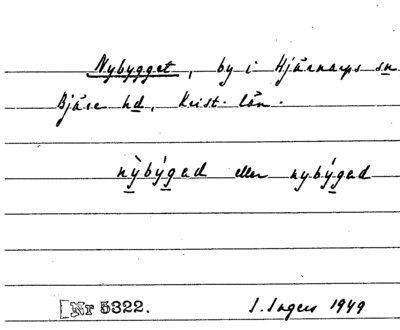 Nybygget, by i Hjärnarps sn
Bjäre hd, Krist. län.
nỳbýgad eller nybýgad
Nr 5322.
I. Ingers 1949